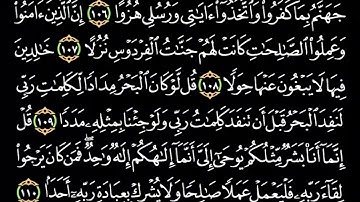 جَهَنَّمُ بِمَا كَفَرُوا۟ وَٱتَّخَذُوٓا۟ ءَايَٰتِى وَرُسُلِى هُزُوًا ١٠٦ إِنَّ ٱلَّذِينَ ءَامَنُوا۟
وَعَمِلُوا۟ ٱلصَّٰلِحَٰتِ كَانَتْ لَهُمْ جَنَّٰتُ ٱلْفِرْدَوْسِ نُزُلًا ١٠٧ خَٰلِدِينَ
فِيهَا لَا يَبْغُونَ عَنْهَا حِوَلًا ١٠٨ قُل لَّوْ كَانَ ٱلْبَحْرُ مِدَادًا لِّكَلِمَٰتِ رَبِّى
لَنَفِدَ ٱلْبَحْرُ قَبْلَ أَن تَنفَدَ كَلِمَٰتُ رَبِّى وَلَوْ جِئْنَا بِمِثْلِهِۦ مَدَدًا ١٠٩ قُلْ
إِنَّمَآ أَنَا۠ بَشَرٌ مِّثْلُكُمْ يُوحَىٰٓ إِلَىَّ أَنَّمَآ إِلَٰهُكُمْ إِلَٰهٌ وَٰحِدٌ ۖ فَمَن كَانَ يَرْجُوا۟
لِقَآءَ رَبِّهِۦ فَلْيَعْمَلْ عَمَلًا صَٰلِحًا وَلَا يُشْرِكْ بِعِبَادَةِ رَبِّهِۦٓ أَحَدًۢا ١١٠